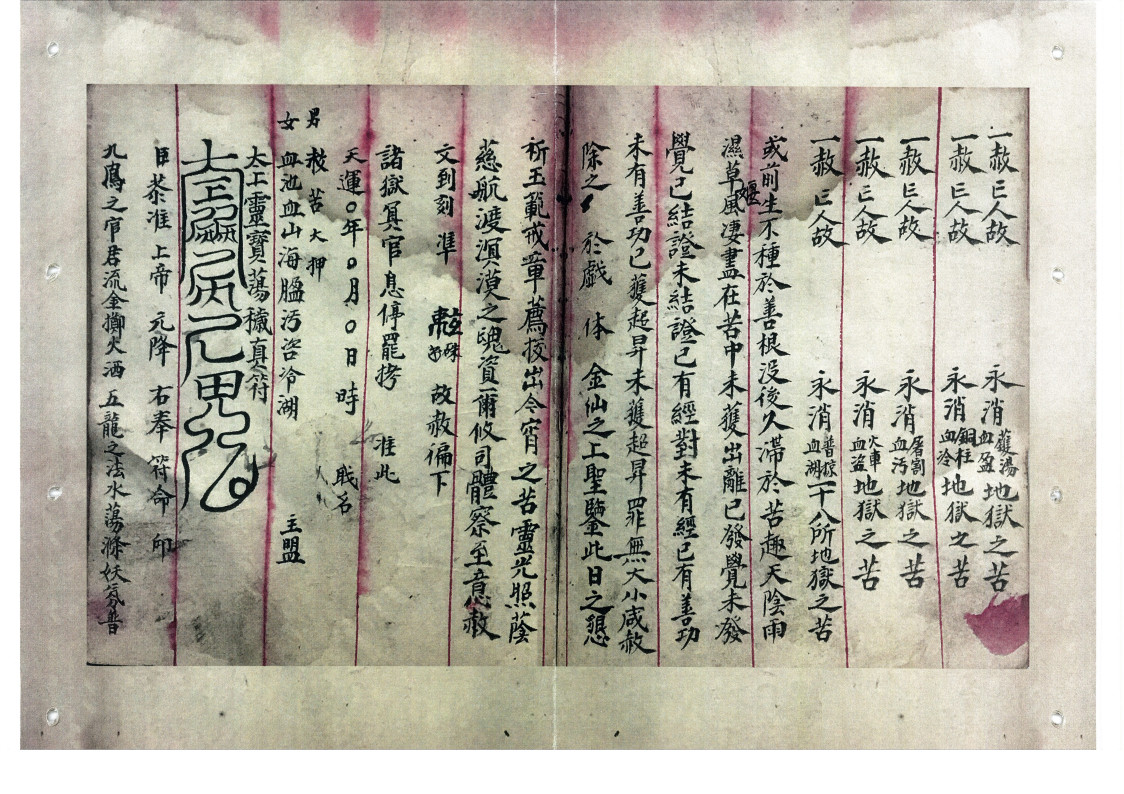 一赦亡人故 永消鑊湯血盈地獄之苦
一赦亡人故 永消銅柱血冷地獄之苦
一赦亡人故 永消屠割血污地獄之苦
一赦亡人故 永消火車血盗地獄之苦
一赦亡人故 永消普掠血湖一十八所地獄之苦
或前生不種於善根没後久滯於苦趣天陰雨
濕草風凄盡在苦中未獲出離已發覺未發
覺已結證未結證已有經對未有經已有善功
未有善功已獲超昇未獲超昇罪無大小咸赦
除之 於戲 体 金仙之上聖鑒此日之懇
祈玉範戒章薦拔出今宵之苦靈光照蔭
慈航渡溟漠之魂資爾攸司體察至意赦
文到刻 準 故赦徧下
諸獄冥官息停罷拷 准此
天運〇年〇月〇日 時 戝名
男 救苦大押
女 血池血山海 污咨冷湖 主盟
太上靈寶蕩穢真符
臣恭准 上帝 元降 右奉 符命 印
九鳳之官君流金擲火洒 五龍之法水蕩滌妖氛普